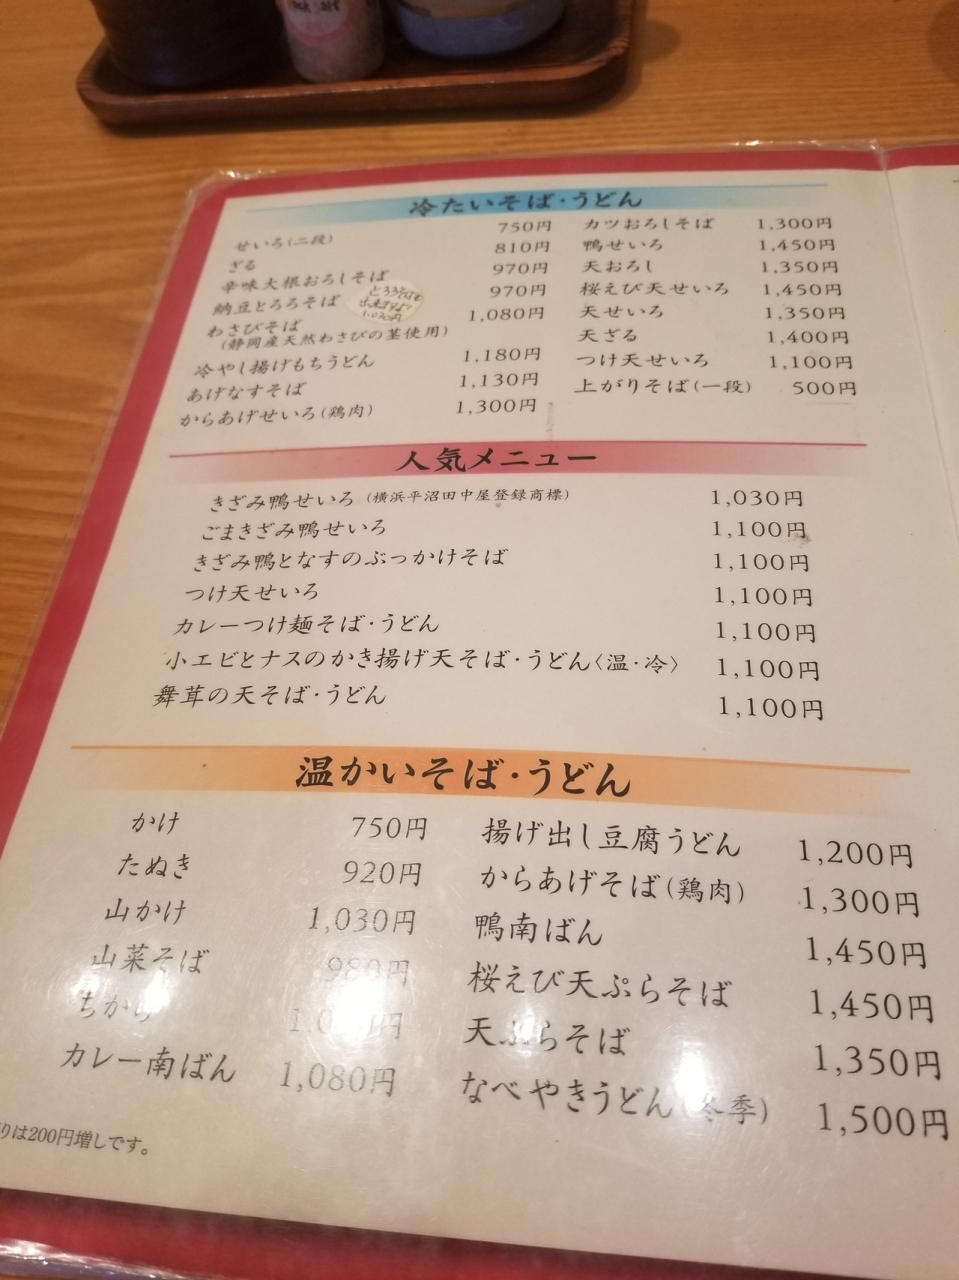 冷たいそば・うどん
せいろ(二段) 750円
ざる 810円
辛味大根おろしそば 970円
納豆とろろそば 970円
とろろそばも
出来ます
わさびそば 1,080円
(静岡産天然わさびの茎使用)
冷やし揚げもちうどん 1,180円
あげなすそば 1,130円
からあげせいろ(鶏肉) 1,300円
カツおろしそば 1,300円
鴨せいろ 1,450円
天おろし 1,350円
桜えび天せいろ 1,450円
天せいろ 1,350円
天ざる 1,400円
つけ天せいろ 1,100円
上がりそば(一段) 500円
人気メニュー
きざみ鴨せいろ (横浜平沼田中屋登録商標) 1,030円
ごまきざみ鴨せいろ 1,100円
きざみ鴨となすのぶっかけそば 1,100円
つけ天せいろ 1,100円
カレーつけ麺そば・うどん 1,100円
小エビとナスのかき揚げ天そば・うどん〈温・冷〉 1,100円
舞茸の天そば・うどん 1,100円
温かいそば・うどん
かけ 750円
たぬき 920円
山かけ 1,030円
山菜そば 980円
ちから
カレー南ばん 1,080円
揚げ出し豆腐うどん 1,200円
からあげそば(鶏肉) 1,300円
鴨南ばん 1,450円
桜えび天ぷらそば 1,450円
天ぷらそば 1,350円
なべやきうどん(冬季) 1,500円
りは200円増しです。